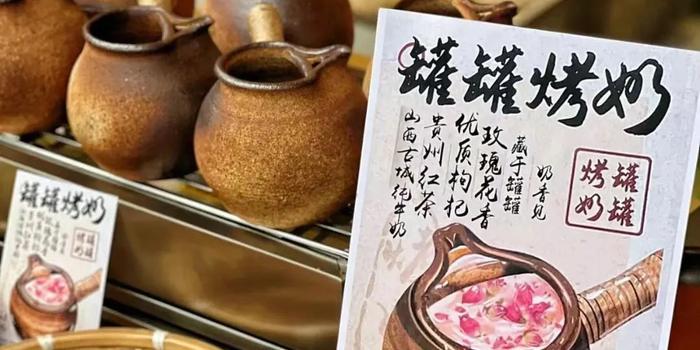 罐罐烤奶
奶香见
藏于罐罐
玫瑰花香
优质枸杞
贵州红茶
山西古城纯牛奶
罐罐
烤奶
罐罐烤奶
罐罐
烤奶